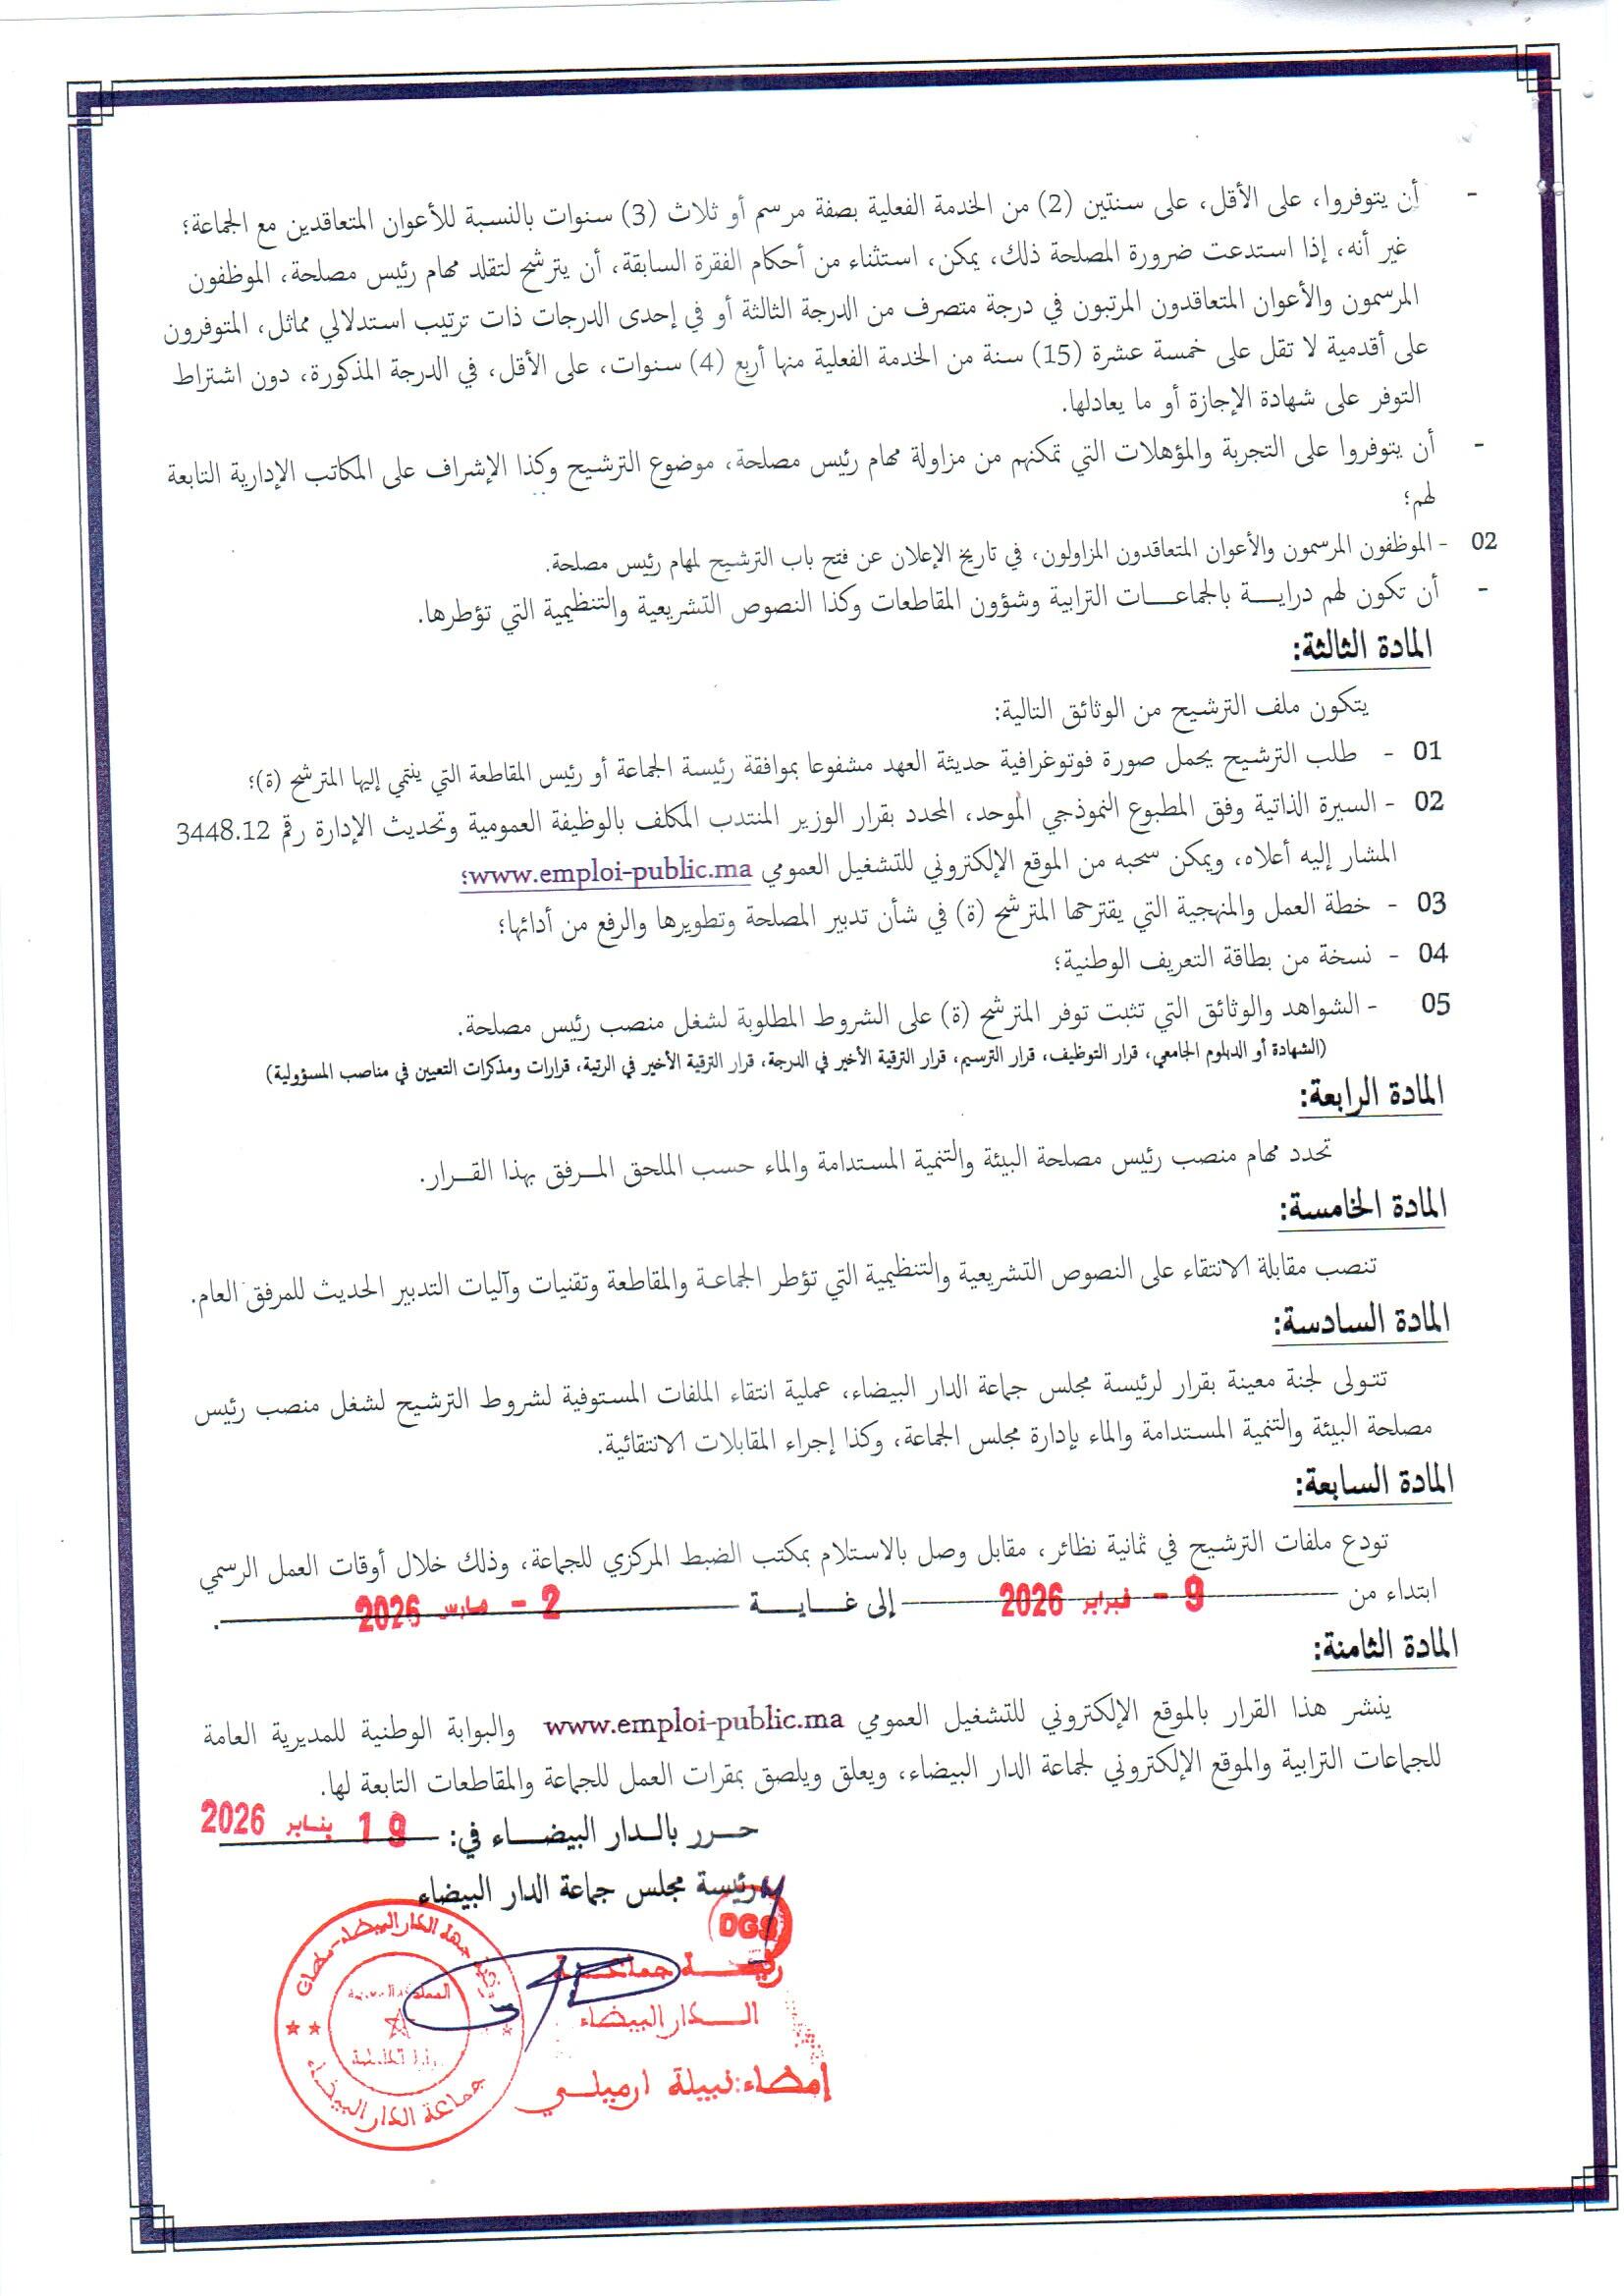 - أن يتوفروا، على الأقل، على سنتين (2) من الخدمة الفعلية بصفة مرسم أو ثلاث (3) سنوات بالنسبة للأعوان المتعاقدين مع الجماعة؛
غير أنه، إذا استدعت ضرورة المصلحة ذلك، يمكن، استثناء من أحكام الفقرة السابقة، أن يترشح لتقلد مهام رئيس مصلحة، الموظفون
المرسمون والأعوان المتعاقدون المرتبون في درجة متصرف من الدرجة الثالثة أو في إحدى الدرجات ذات ترتيب استدلالي مماثل، المتوفرون
على أقدمية لا تقل على خمسة عشرة (15) سنة من الخدمة الفعلية منها أربع (4) سنوات، على الأقل، في الدرجة المذكورة، دون اشتراط
التوفر على شهادة الإجازة أو ما يعادلها.
- أن يتوفروا على التجربة والمؤهلات التي تمكنهم من مزاولة مهام رئيس مصلحة، موضوع الترشيح وكذا الإشراف على المكاتب الإدارية التابعة
لهم؛
02 - الموظفون المرسمون والأعوان المتعاقدون المزاولون، في تاريخ الإعلان عن فتح باب الترشيح لمهام رئيس مصلحة.
- أن تكون لهم درايــة بالجماعــات الترابية وشؤون المقاطعات وكذا النصوص التشريعية والتنظيمية التي تؤطرها.
المادة الثالثة:
يتكون ملف الترشيح من الوثائق التالية:
01 - طلب الترشيح يحمل صورة فوتوغرافية حديثة العهد مشفوعا بموافقة رئيسة الجماعة أو رئيس المقاطعة التي ينتمي إليها المترشح (ة)؛
02 - السيرة الذاتية وفق المطبوع النموذجي الموحد، المحدد بقرار الوزير المنتدب المكلف بالوظيفة العمومية وتحديث الإدارة رقم 3448.12
المشار إليه أعلاه، ويمكن سحبه من الموقع الإلكتروني للتشغيل العمومي www.emploi-public.ma؛
03 - خطة العمل والمنهجية التي يقترحها المترشح (ة) في شأن تدبير المصلحة وتطويرها والرفع من أدائها؛
04 - نسخة من بطاقة التعريف الوطنية؛
05 - الشواهد والوثائق التي تثبت توفر المترشح (ة) على الشروط المطلوبة لشغل منصب رئيس مصلحة.
(الشهادة أو الدبلوم الجامعي، قرار التوظيف، قرار الترسيم، قرار الترقية الأخير في الدرجة، قرار الترقية الأخير في الرتبة، قرارات ومذكرات التعيين في مناصب المسؤولية)
المادة الرابعة:
تحدد مهام منصب رئيس مصلحة البيئة والتنمية المستدامة والماء حسب الملحق المــرفق بهذا القــرار.
المادة الخامسة:
تنصب مقابلة الانتقاء على النصوص التشريعية والتنظيمية التي تؤطر الجماعة والمقاطعة وتقنيات وآليات التدبير الحديث للمرفق العام.
المادة السادسة:
تتولى لجنة معينة بقرار لرئيسة مجلس جماعة الدار البيضاء، عملية انتقاء الملفات المستوفية لشروط الترشيح لشغل منصب رئيس
مصلحة البيئة والتنمية المستدامة والماء بإدارة مجلس الجماعة، وكذا إجراء المقابلات الانتقائية.
المادة السابعة:
تودع ملفات الترشيح في ثمانية نظائر، مقابل وصل بالاستلام بمكتب الضبط المركزي للجماعة، وذلك خلال أوقات العمل الرسمي
ابتداء من 9 - فبراير 2026 إلى غــايــة 2 - مارس 2026.
المادة الثامنة:
ينشر هذا القرار بالموقع الإلكتروني للتشغيل العمومي www.emploi-public.ma والبوابة الوطنية للمديرية العامة
للجماعات الترابية والموقع الإلكتروني لجماعة الدار البيضاء، ويعلق ويلصق بمقرات العمل للجماعة والمقاطعات التابعة لها.
حــرر بالــدار البيضــاء في: 19 يناير 2026
رئيسة مجلس جماعة الدار البيضاء
DGS
رئيســة جماعــة
الــدار البيضاء
إمضاء: نبيلة ارميلــي
جهة الدار البيضاء-سطات
المملكة المغربية
وزارة الداخلية
جماعة الدار البيضاء